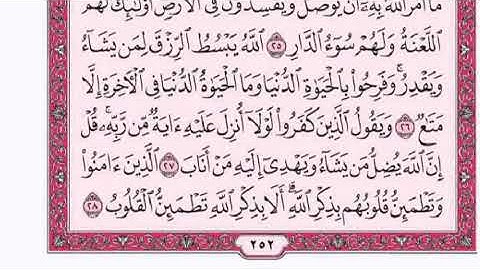 مَا أَمَرَ اللَّهُ بِهِ أَن يُوصَلَ وَيُفْسِدُونَ فِي الْأَرْضِ أُولَٰئِكَ لَهُمُ
اللَّعْنَةُ وَلَهُمْ سُوءُ الدَّارِ ٢٥ اللَّهُ يَبْسُطُ الرِّزْقَ لِمَن يَشَاءُ
وَيَقْدِرُ ۚ وَفَرِحُوا بِالْحَيَوٰةِ الدُّنْيَا وَمَا الْحَيَوٰةُ الدُّنْيَا فِي الْآخِرَةِ إِلَّا
مَتَٰعٌ ٢٦ وَيَقُولُ الَّذِينَ كَفَرُوا لَوْلَا أُنزِلَ عَلَيْهِ ءَايَةٌ مِّن رَّبِّهِ ۗ قُلْ
إِنَّ اللَّهَ يُضِلُّ مَن يَشَاءُ وَيَهْدِي إِلَيْهِ مَنْ أَنَابَ ٢٧ الَّذِينَ ءَامَنُوا
وَتَطْمَئِنُّ قُلُوبُهُم بِذِكْرِ اللَّهِ ۗ أَلَا بِذِكْرِ اللَّهِ تَطْمَئِنُّ الْقُلُوبُ ٢٨
٢٥٢